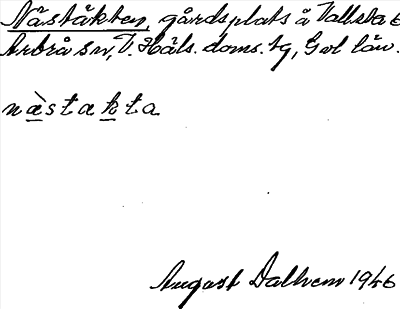 Naståkten, gårdsplats å Vallsta
Arbrå sn, V. Häls. doms. tg, Gvl län.
nàstakta
August Dalhem 1946